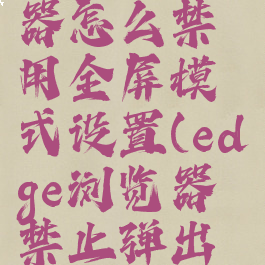 器怎么禁
用全屏模
式设置(ed
ge浏览器
禁止弹出